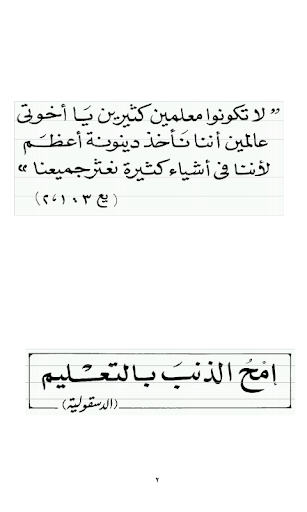 ” لا تكونوا معلمين كثيرين يَا أخوتى
عالمين أننا نَأخذ دينونة أعظَم
لأننا فى أشياء كثيرة نعثر جميعنا »
( يع ٣ : ١ ، ٢ )
إمْحُ الذنبَ بالتعْليم
(الدسقولية)
٢